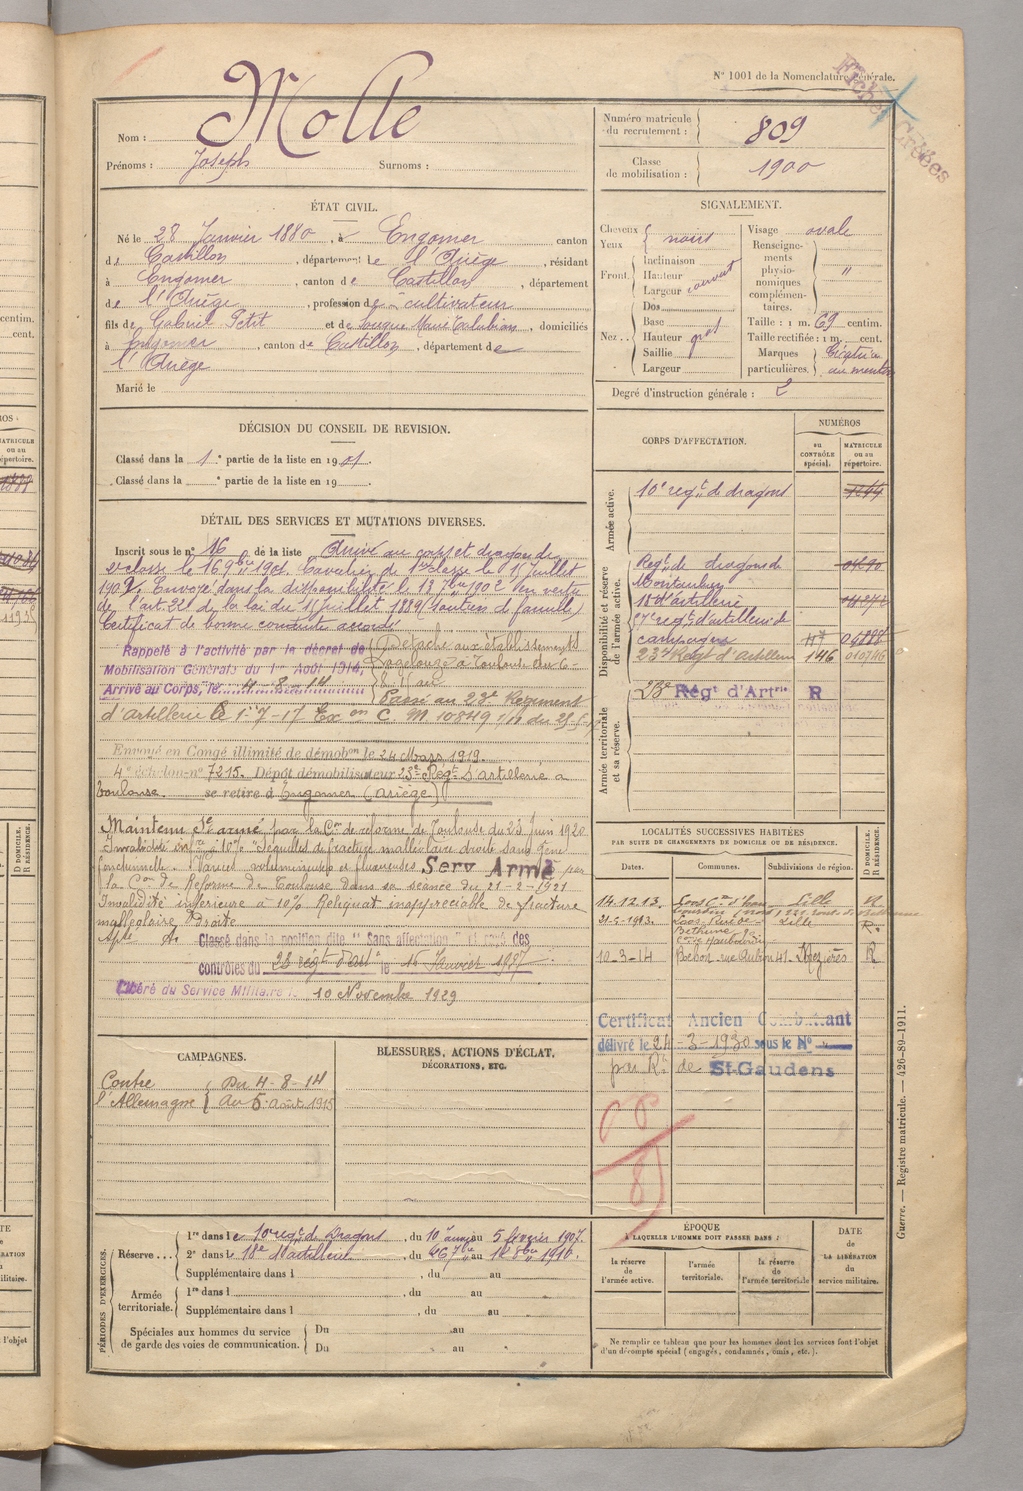 N° 1001 de la Nomenclature générale.
Fiches Créées
Nom : Molle
Prénoms : Joseph Surnoms :
Numéro matricule du recrutement : 809
Classe de mobilisation : 1900
ÉTAT CIVIL.
Né le 28 Janvier 1880, à Engomer canton
de Castillon, département de l'Ariège, résidant
à Engomer, canton de Castillon, département
de l'Ariège, profession de cultivateur
fils de Gabriel Petit et de Marie, domiciliés
à Engomer, canton de Castillon, département de
l'Ariège
Marié le
SIGNALEMENT.
Cheveux
Yeux noirs
Front. Inclinaison
Hauteur
Largeur couvert
Nez.. Dos
Base
Hauteur gros
Saillie
Largeur
Visage ovale
Renseignements physionomiques complémentaires. "
Taille : 1 m. 69 centim.
Taille rectifiée : 1 m. cent.
Marques particulières. Cicatrice au menton
Degré d'instruction générale : 2
DÉCISION DU CONSEIL DE REVISION.
Classé dans la 1e partie de la liste en 1901.
Classé dans la e partie de la liste en 19
DÉTAIL DES SERVICES ET MUTATIONS DIVERSES.
Inscrit sous le n° 16 de la liste Arrivé au corps et dragon de
2e classe le 16 9bre 1901. Cavalier de 1re classe le 15 Juillet
1902. Envoyé dans la disponibilité le 18 7bre 1902 en vertu
de l'art. 22 de la loi du 15 juillet 1889 (Soutien de famille)
Certificat de bonne conduite accordé
Rappelé à l'activité par le décret de
Mobilisation Générale du 1er Août 1914,
Arrivé au Corps, le 4-8-14
Détaché aux établissements
à Toulouse du 6-
Passé au 23e Régiment
d'artillerie le 1-7-17 Ex on C. M 10849 1/11 du 25-5-17
Envoyé en Congé illimité de démobon le 24 Mars 1919.
4e échelon n° 7215. Dépôt démobilisateur 23e Régt d'artillerie à
Toulouse. se retire à Engomer (Ariège)
Maintenu Sce armé par la Con de réforme de Toulouse du 23 Juin 1920
Invalidité infre à 10% Séquelles de fracture malléolaire droite sans gêne
fonctionnelle. Varices volumineuses et flueuses Serv Armé par
la Con de Réforme de Toulouse dans sa séance du 21-2-1921
Invalidité inférieure à 10% Reliquat inappréciable de fracture
malléolaire Droite
Classé dans la position dite "Sans affectation" et rayé des
contrôles du 23 régt d'art le 15 Janvier 1927
Libéré du Service Militaire le 10 Novembre 1929
CORPS D'AFFECTATION.
NUMÉROS
au CONTRÔLE spécial.
MATRICULE ou au répertoire.
Armée active.
10e régt de dragons 1244
Disponibilité et réserve de l'armée active.
Régt de dragons de
Montauban
18e d'artillerie
57e régt d'artillerie de
campagne 117
23e Régt d'artillerie 146 010746
Armée territoriale et sa réserve.
23e Régt d'Artrie R
LOCALITÉS SUCCESSIVES HABITÉES
PAR SUITE DE CHANGEMENTS DE DOMICILE OU DE RÉSIDENCE.
Dates. Communes. Subdivisions de région.
D DOMICILE. R RÉSIDENCE.
14.12.13. Lille R
21-5-1913. Loos Lille R.
Béthune
10-3-14 41 Mézières R
Certificat Ancien Combattant
délivré le 24-3-1930 sous le N°
par Rt de St-Gaudens
CAMPAGNES.
Contre l'Allemagne
Du 4-8-14
Au 5 Août 1915
BLESSURES, ACTIONS D'ÉCLAT,
DÉCORATIONS, ETC.
PÉRIODES D'EXERCICES.
Réserve...
1re dans le 10e régt de Dragons, du 10 janv au 5 février 1907.
2e dans le 18e d'artillerie, du 26 7bre au 12 8bre 1910.
Supplémentaire dans l , du au
Armée territoriale.
1re dans l , du au
Supplémentaire dans l , du au
Spéciales aux hommes du service de garde des voies de communication.
Du au
Du au
ÉPOQUE
À LAQUELLE L'HOMME DOIT PASSER DANS :
la réserve de l'armée active.
l'armée territoriale.
la réserve de l'armée territoriale
DATE de LA LIBÉRATION du service militaire.
Ne remplir ce tableau que pour les hommes dont les services font l'objet
d'un décompte spécial (engagés, condamnés, omis, etc.).
Guerre. — Registre matricule. — 426-89-1911.